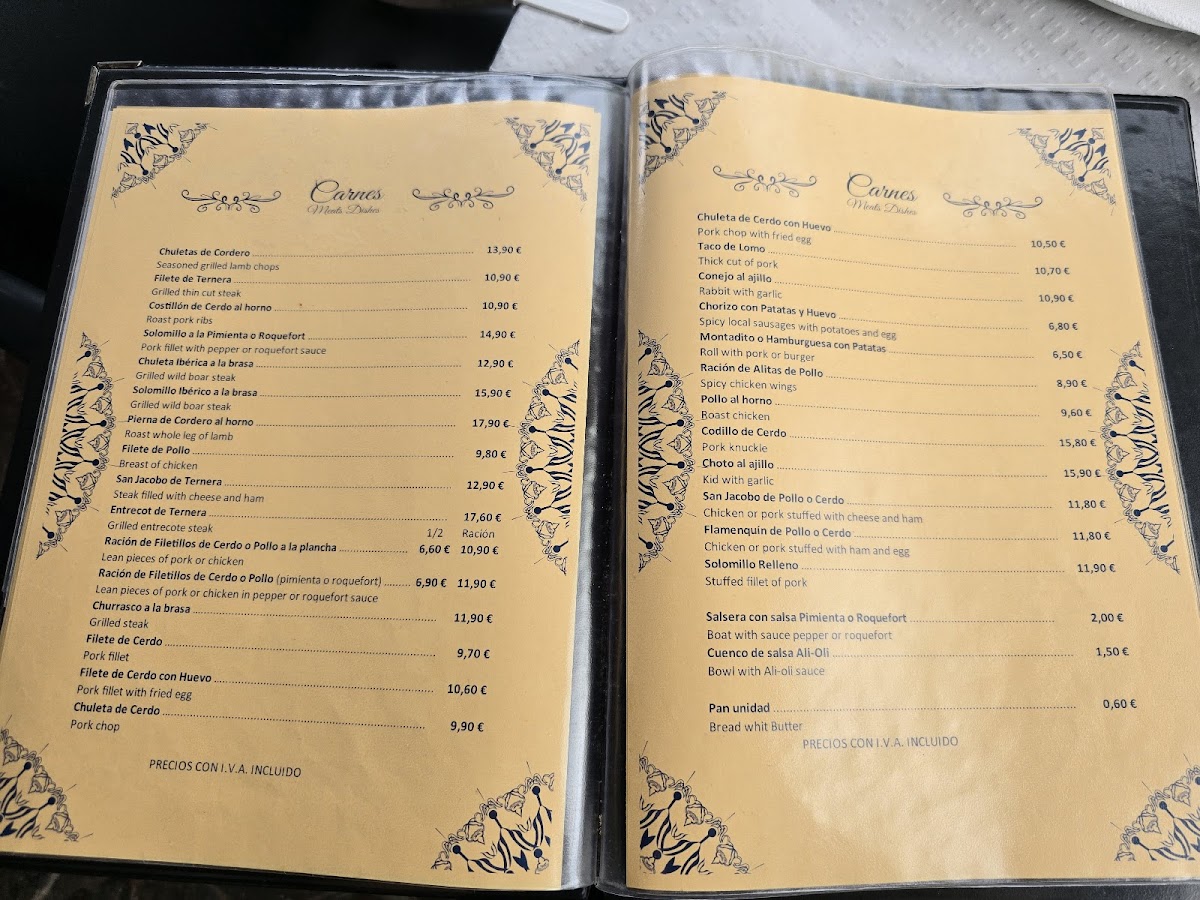 Carnes
Meats Dishes
Chuletas de Cordero 13,90 €
Seasoned grilled lamb chops
Filete de Ternera 10,90 €
Grilled thin cut steak
Costillón de Cerdo al horno 10,90 €
Roast pork ribs
Solomillo a la Pimienta o Roquefort 14,90 €
Pork fillet with pepper or roquefort sauce
Chuleta Ibérica a la brasa 12,90 €
Grilled wild boar steak
Solomillo Ibérico a la brasa 15,90 €
Grilled wild boar steak
Pierna de Cordero al horno 17,90 €
Roast whole leg of lamb
Filete de Pollo 9,80 €
Breast of chicken
San Jacobo de Ternera 12,90 €
Steak filled with cheese and ham
Entrecot de Ternera 17,60 €
Grilled entrecote steak 1/2 Ración
Ración de Filetillos de Cerdo o Pollo a la plancha 6,60 € 10,90 €
Lean pieces of pork or chicken
Ración de Filetillos de Cerdo o Pollo (pimienta o roquefort) 6,90 € 11,90 €
Lean pieces of pork or chicken in pepper or roquefort sauce
Churrasco a la brasa 11,90 €
Grilled steak
Filete de Cerdo 9,70 €
Pork fillet
Filete de Cerdo con Huevo 10,60 €
Pork fillet with fried egg
Chuleta de Cerdo 9,90 €
Pork chop
PRECIOS CON I.V.A. INCLUIDO
Carnes
Meats Dishes
Chuleta de Cerdo con Huevo 10,50 €
Pork chop with fried egg
Taco de Lomo 10,70 €
Thick cut of pork
Conejo al ajillo 10,90 €
Rabbit with garlic
Chorizo con Patatas y Huevo 6,80 €
Spicy local sausages with potatoes and egg
Montadito o Hamburguesa con Patatas 6,50 €
Roll with pork or burger
Ración de Alitas de Pollo 8,90 €
Spicy chicken wings
Pollo al horno 9,60 €
Roast chicken
Codillo de Cerdo 15,80 €
Pork knuckle
Choto al ajillo 15,90 €
Kid with garlic
San Jacobo de Pollo o Cerdo 11,80 €
Chicken or pork stuffed with cheese and ham
Flamenquín de Pollo o Cerdo 11,80 €
Chicken or pork stuffed with ham and egg
Solomillo Relleno 11,90 €
Stuffed fillet of pork
Salsera con salsa Pimienta o Roquefort 2,00 €
Boat with sauce pepper or roquefort
Cuenco de salsa Ali-Oli 1,50 €
Bowl with Ali-oli sauce
Pan unidad 0,60 €
Bread whit Butter
PRECIOS CON I.V.A. INCLUIDO